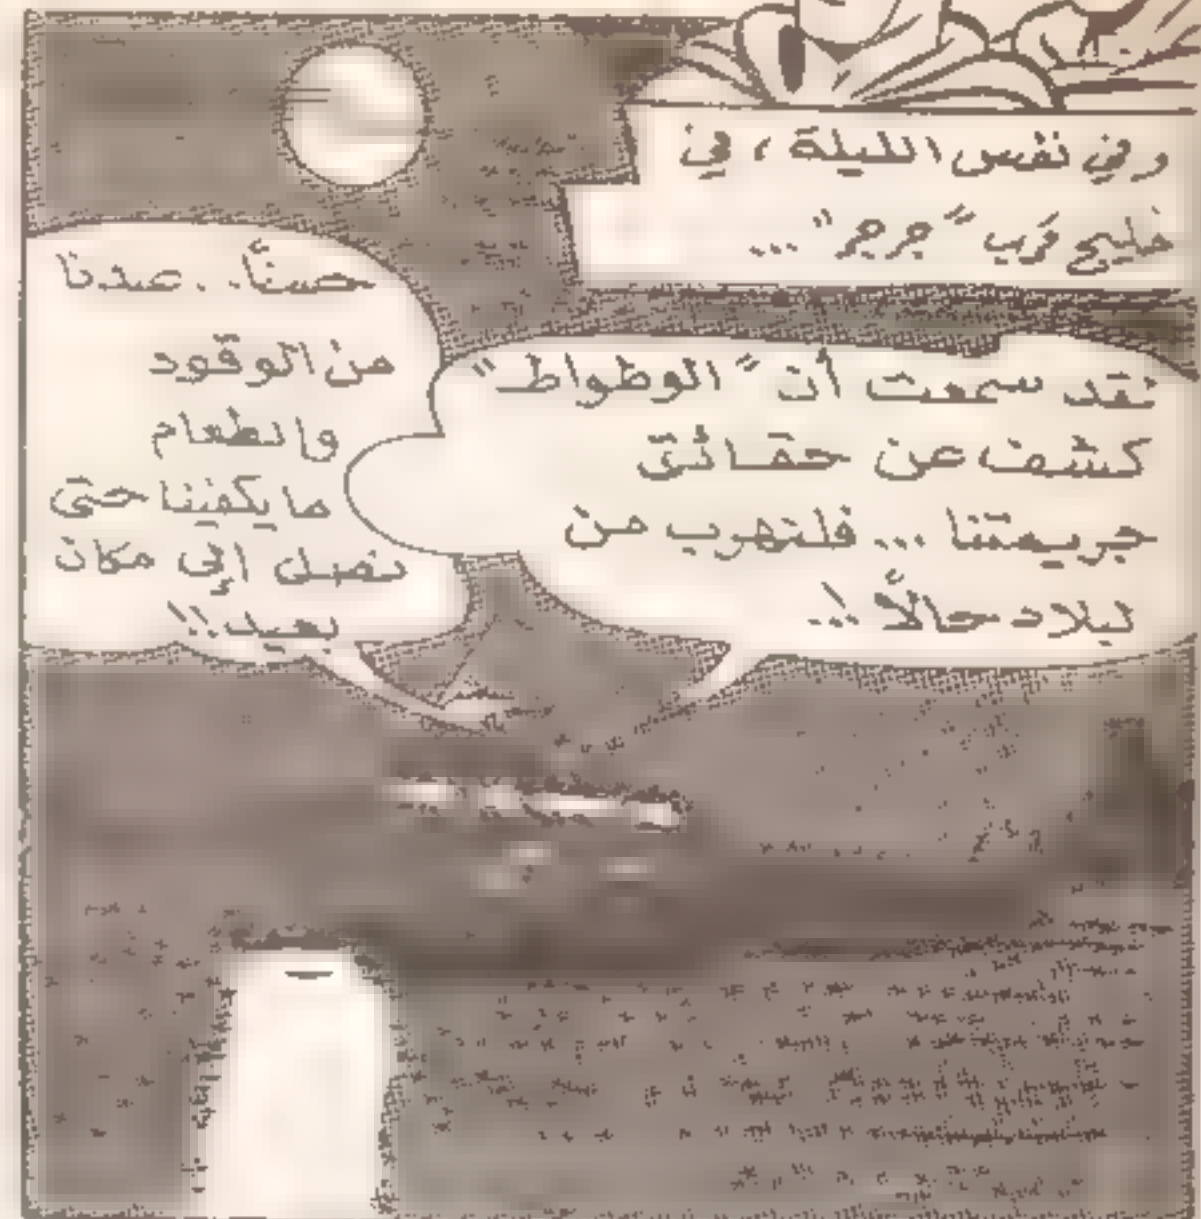 وفي نفس الليلة، في
خليج قرب "جرجر"...
لقد سمعت أن "الوطواط"
كشف عن حقائق
جريمتنا... فلنهرب من
البلاد حالاً!..
حسناً.. عندنا
من الوقود
والطعام
ما يكفينا حتى
نصل إلى مكان
بعيد!!